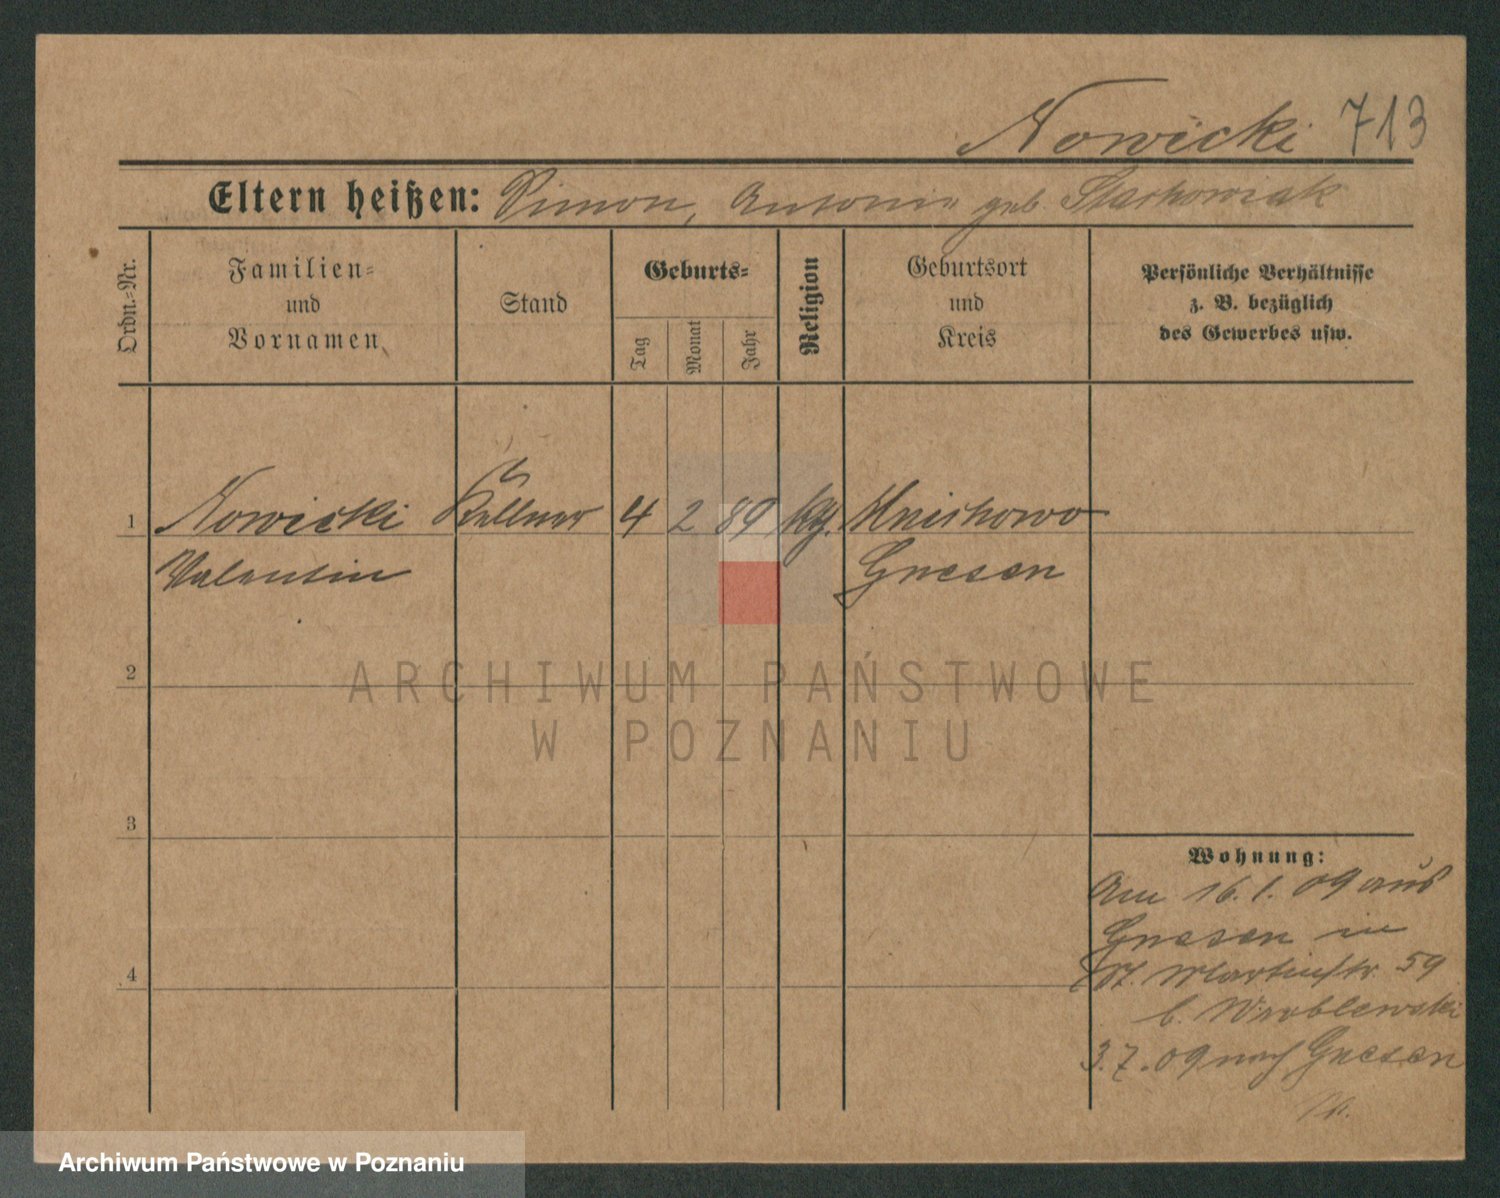 Nowicki 713
Eltern heißen: Simon, Antonie geb. Stachowiak
Ordn.-Nr.
Familien-
und
Vornamen
Stand
Geburts-
Tag
Monat
Jahr
Religion
Geburtsort
und
Kreis
Persönliche Verhältnisse
z. B. bezüglich
des Gewerbes usw.
1 Nowicki Kellner 4 2 89 kth. Mnichowo
Valentin Gnesen
2
ARCHIWUM PAŃSTWOWE
W POZNANIU
3
Wohnung:
Am 16.1.09 aus
Gnesen in
4
St. Martinstr. 59
b. Wroblewski
3.7.09 nach Gnesen
Archiwum Państwowe w Poznaniu